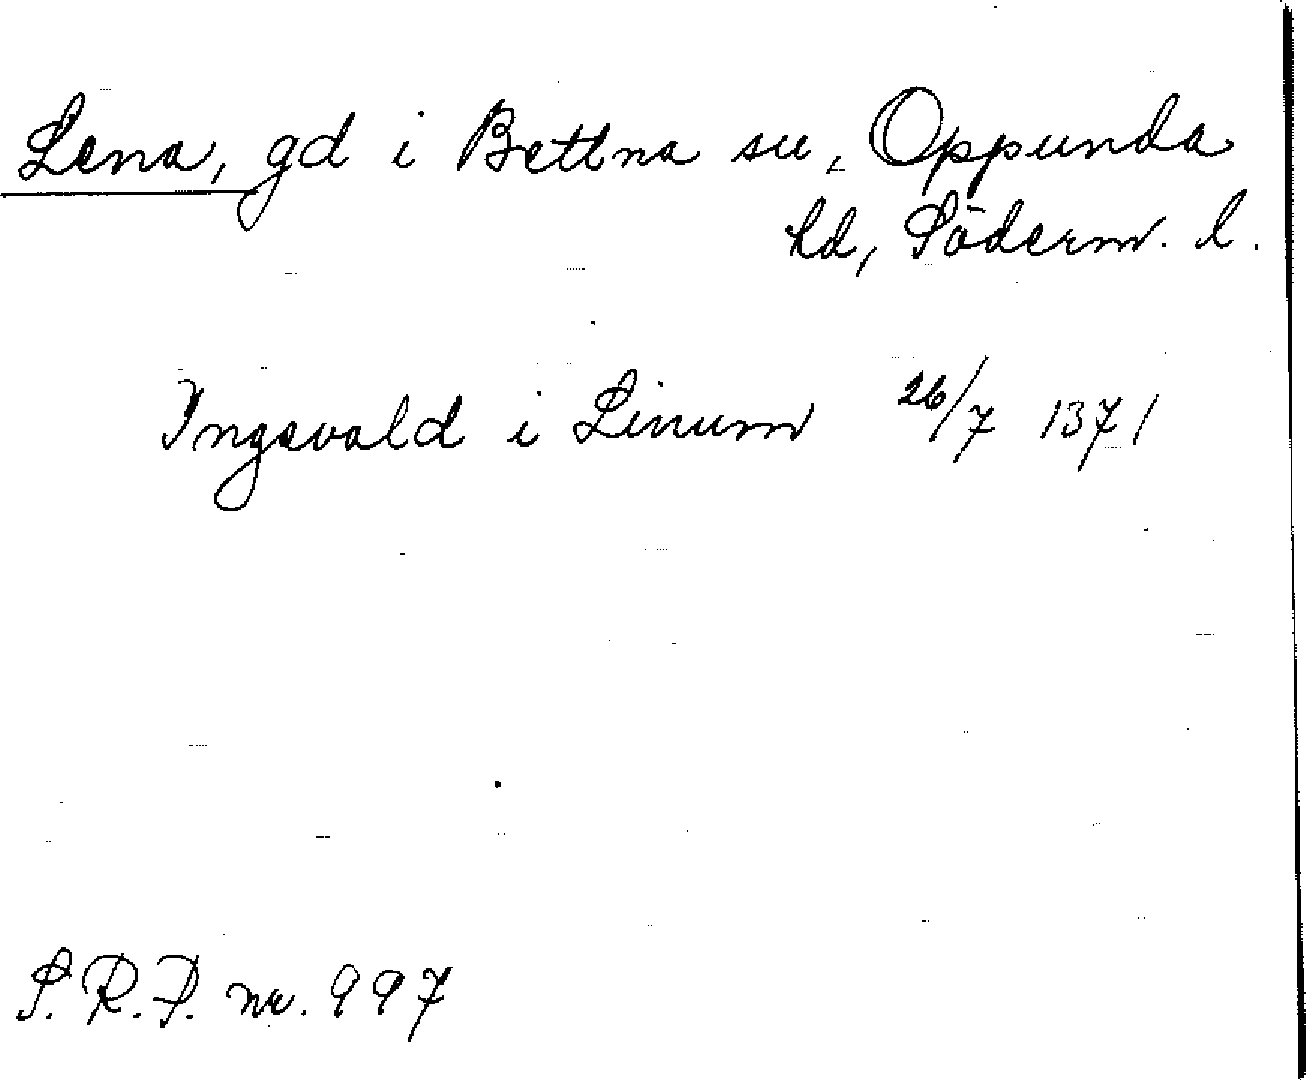 Lena, gd i Bettna sn, Oppunda
hd, Söderm. l.
Ingevald i Linum 26/7 1371
S.R.P. nr. 997